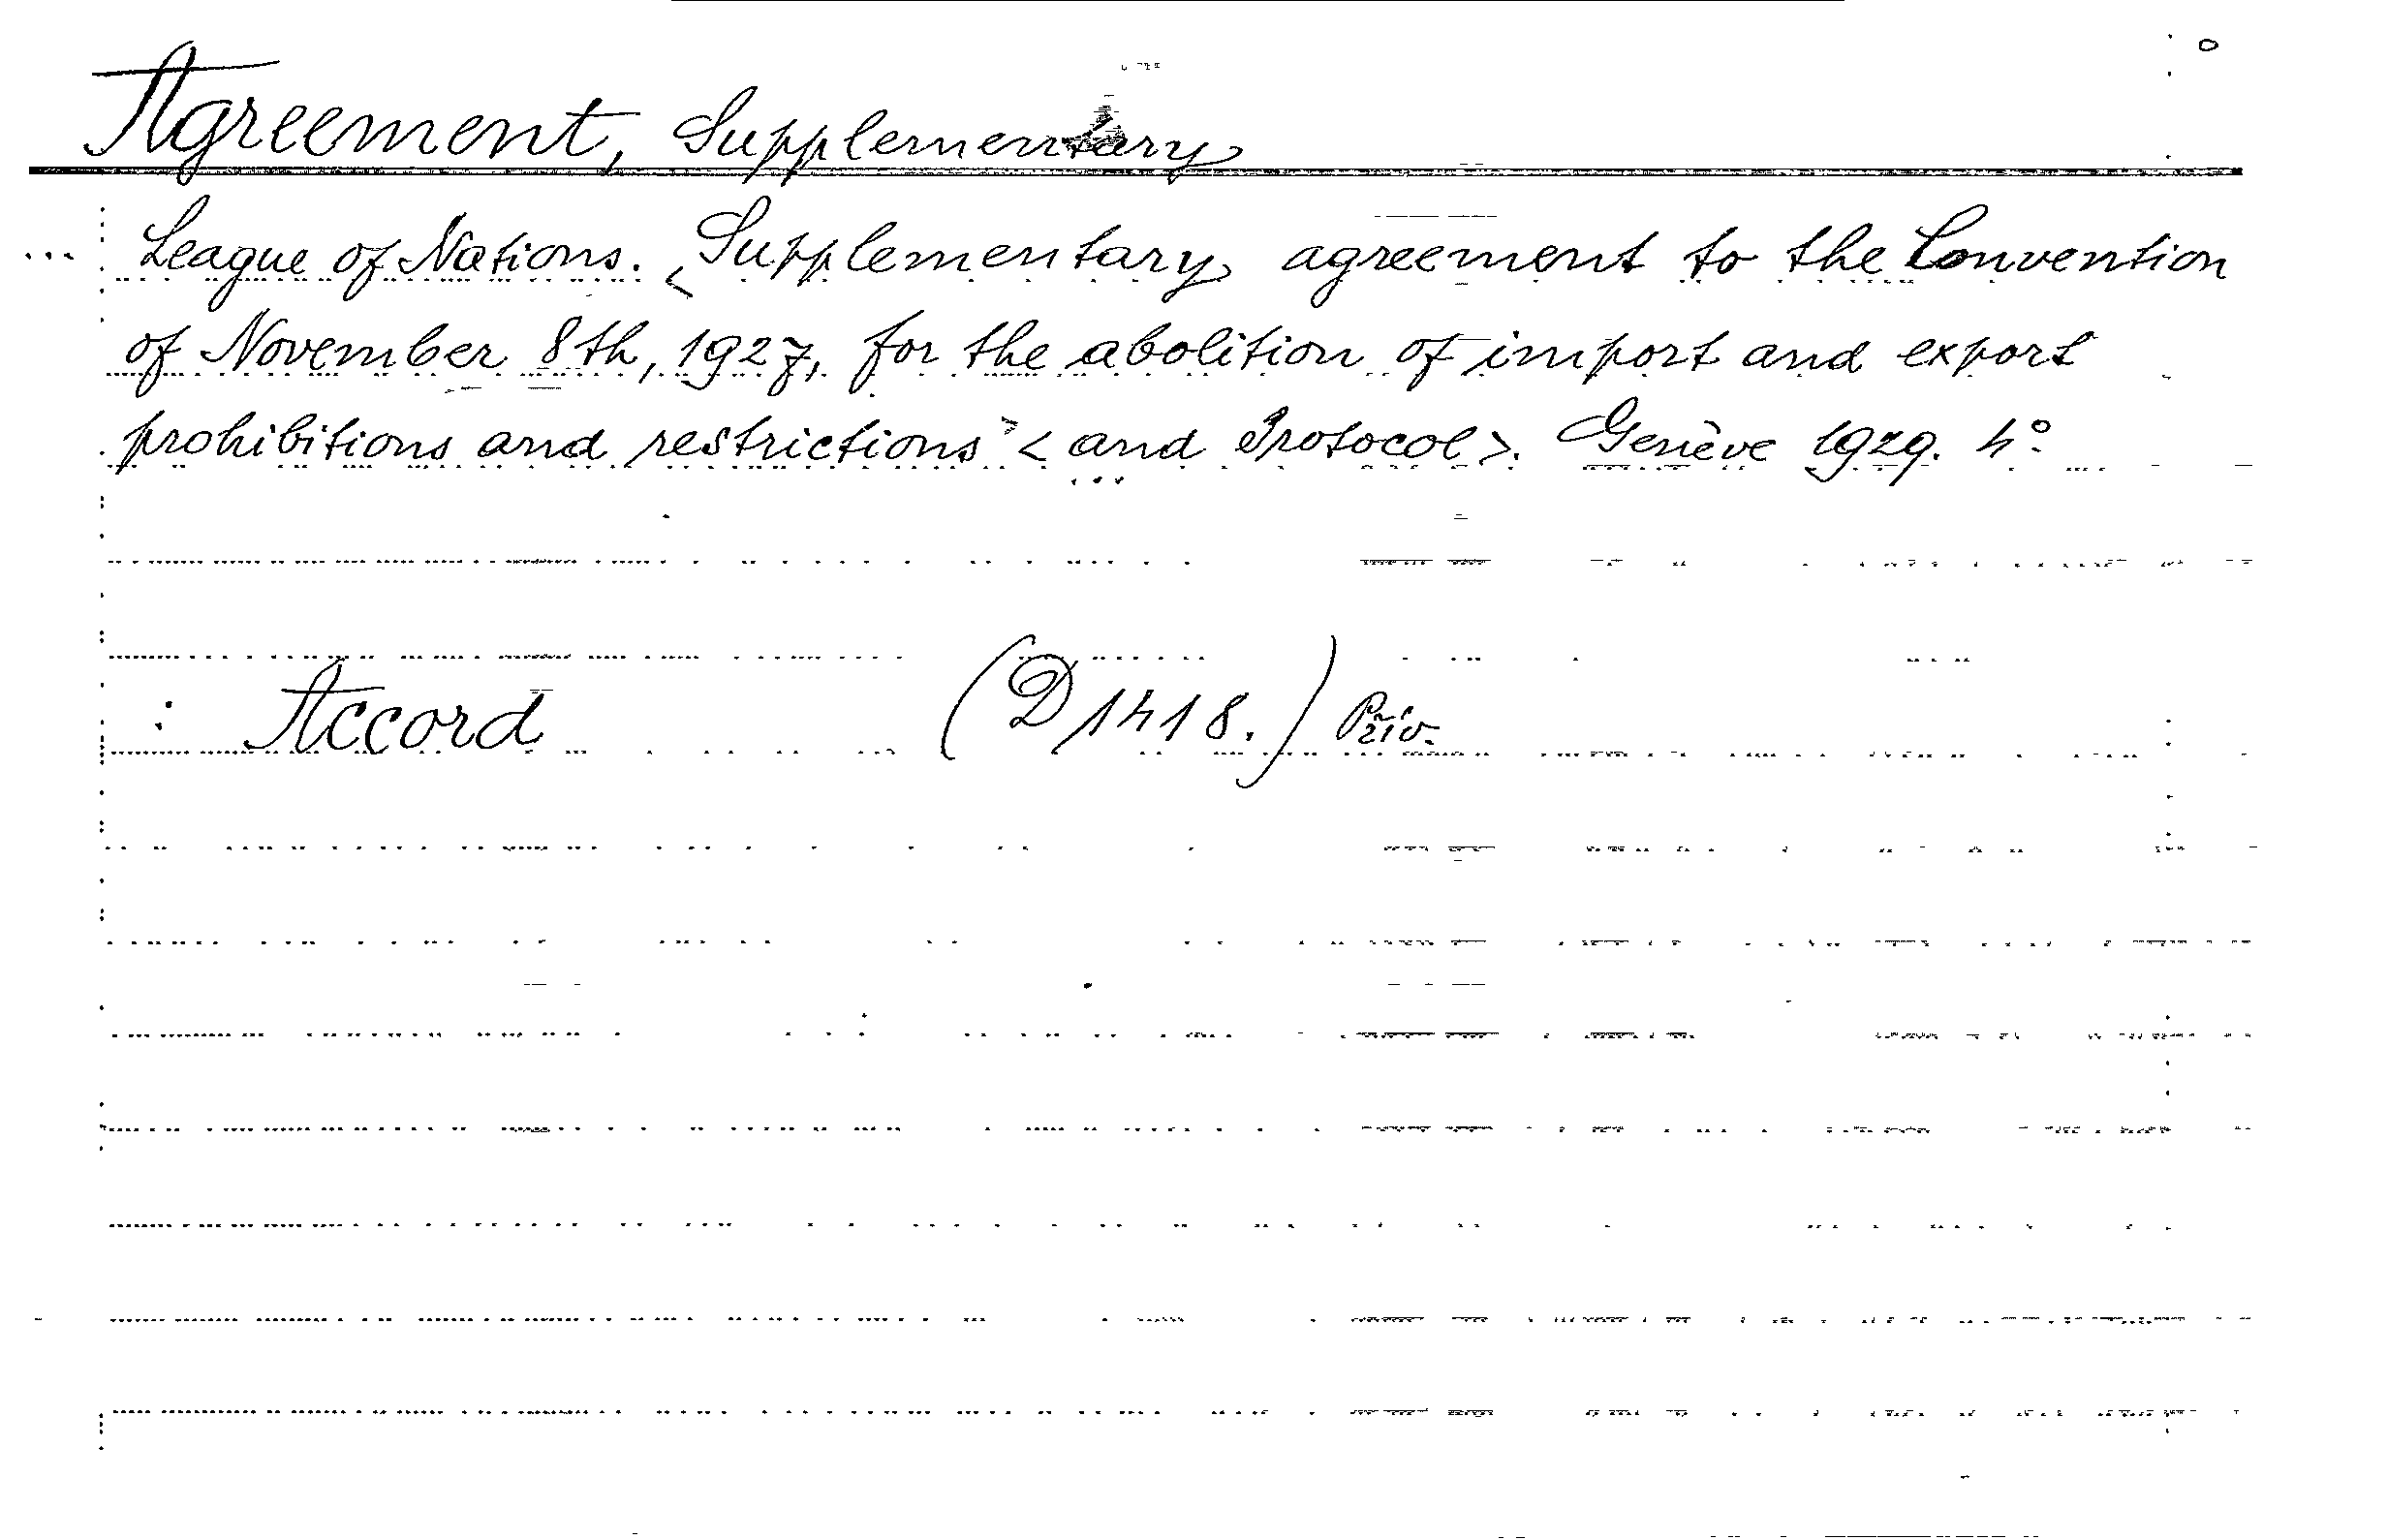 Agreement, Supplementary
League of Nations. <Supplementary agreement to the Convention
of November 8th, 1927, for the abolition of import and export
prohibitions and restrictions> <and Protocol>. Genève 1929. 4°
: Accord (D 1418.)